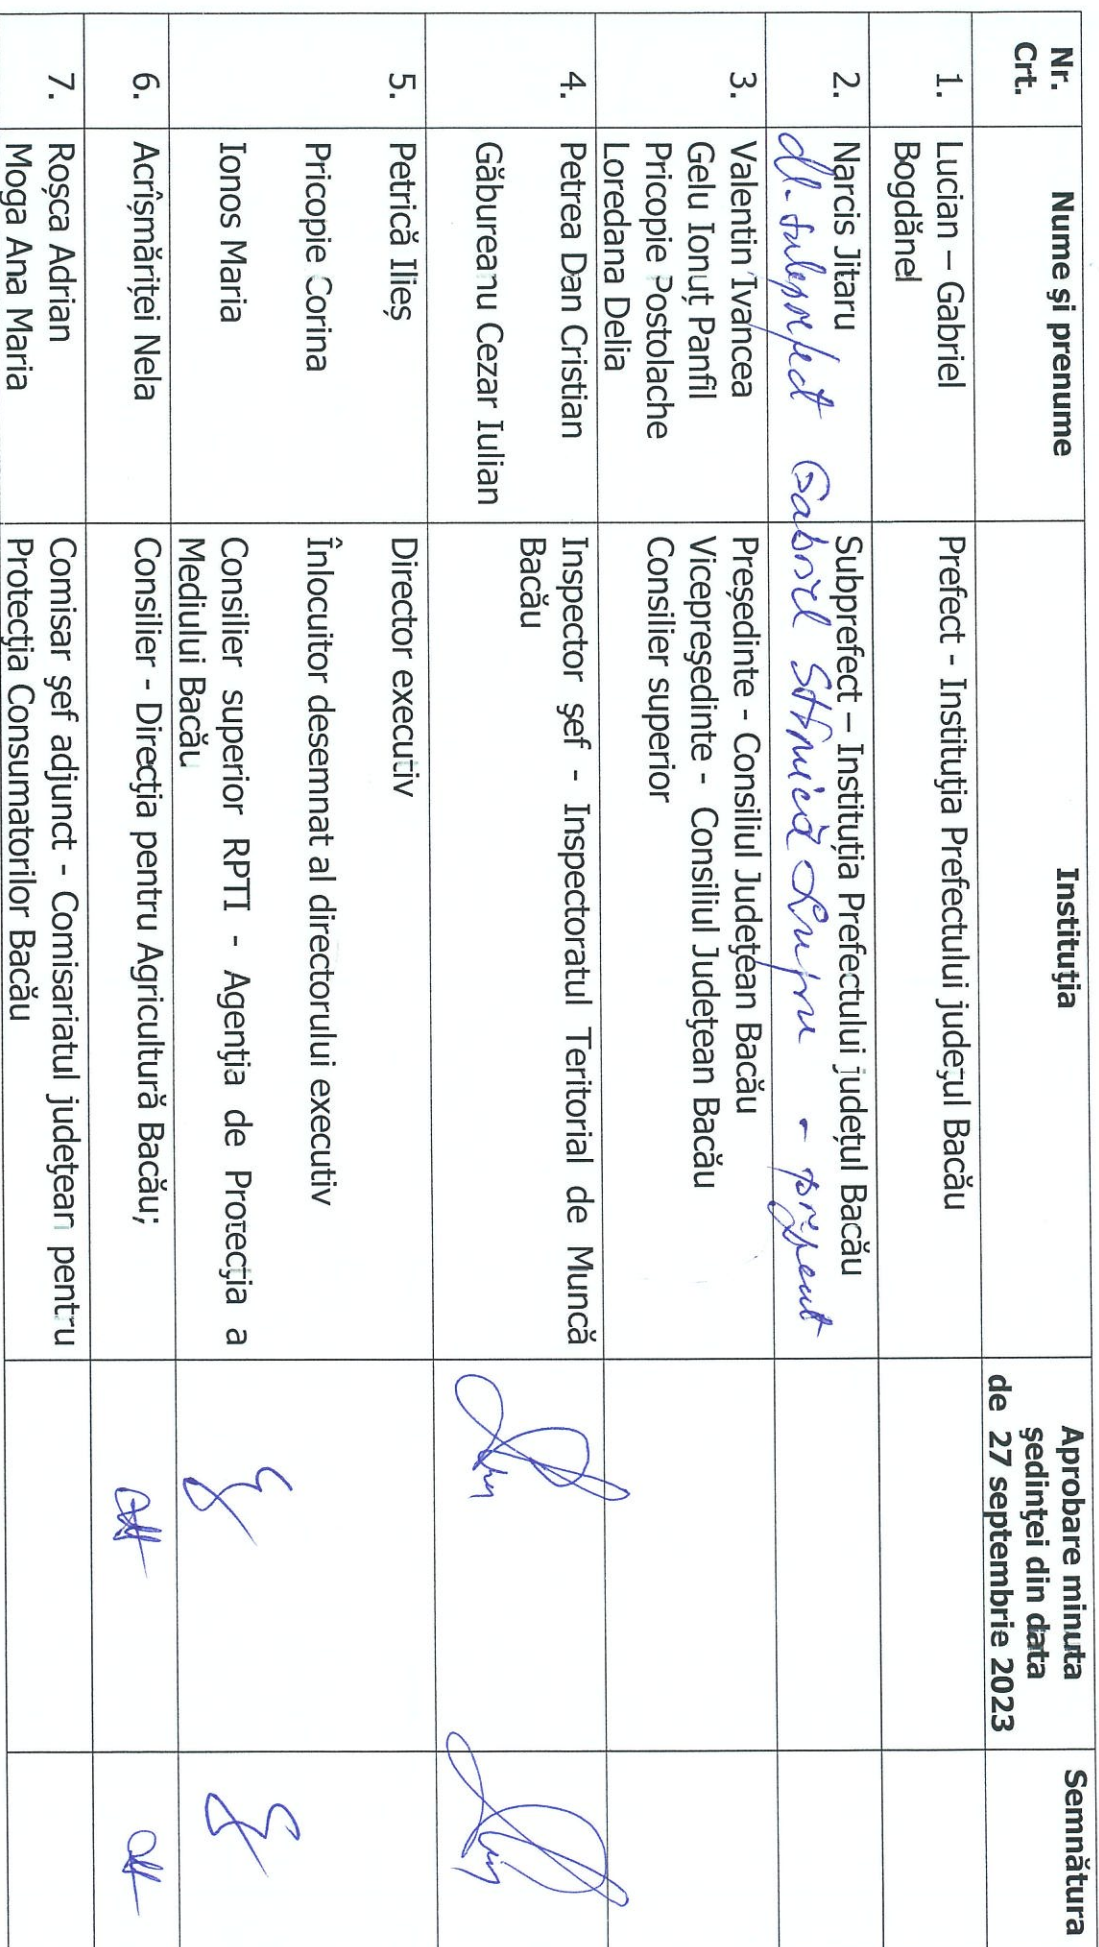 Nr.
Crt.
Nume și prenume
Instituția
Aprobare minuta
ședinței din data
de 27 septembrie 2023
Semnătura
1.
Lucian – Gabriel
Bogdănel
Prefect - Instituția Prefectului județul Bacău
2.
Narcis Jitaru
Subprefect – Instituția Prefectului județul Bacău
dl. subprefect Gabriel Stănică Lupu - prezent
3.
Valentin Ivancea
Gelu Ionuț Panfil
Pricopie Postolache
Loredana Delia
Președinte - Consiliul Județean Bacău
Vicepreședinte - Consiliul Județean Bacău
Consilier superior
4.
Petrea Dan Cristian
Găbureanu Cezar Iulian
Inspector șef - Inspectoratul Teritorial de Muncă
Bacău
5.
Petrică Ilieș
Pricopie Corina
Ionos Maria
Director executiv
Înlocuitor desemnat al directorului executiv
Consilier superior RPTI - Agenția de Protecția a
Mediului Bacău
6.
Acrîșmăriței Nela
Consilier - Direcția pentru Agricultură Bacău;
7.
Roșca Adrian
Moga Ana Maria
Comisar șef adjunct - Comisariatul județean pentru
Protecția Consumatorilor Bacău